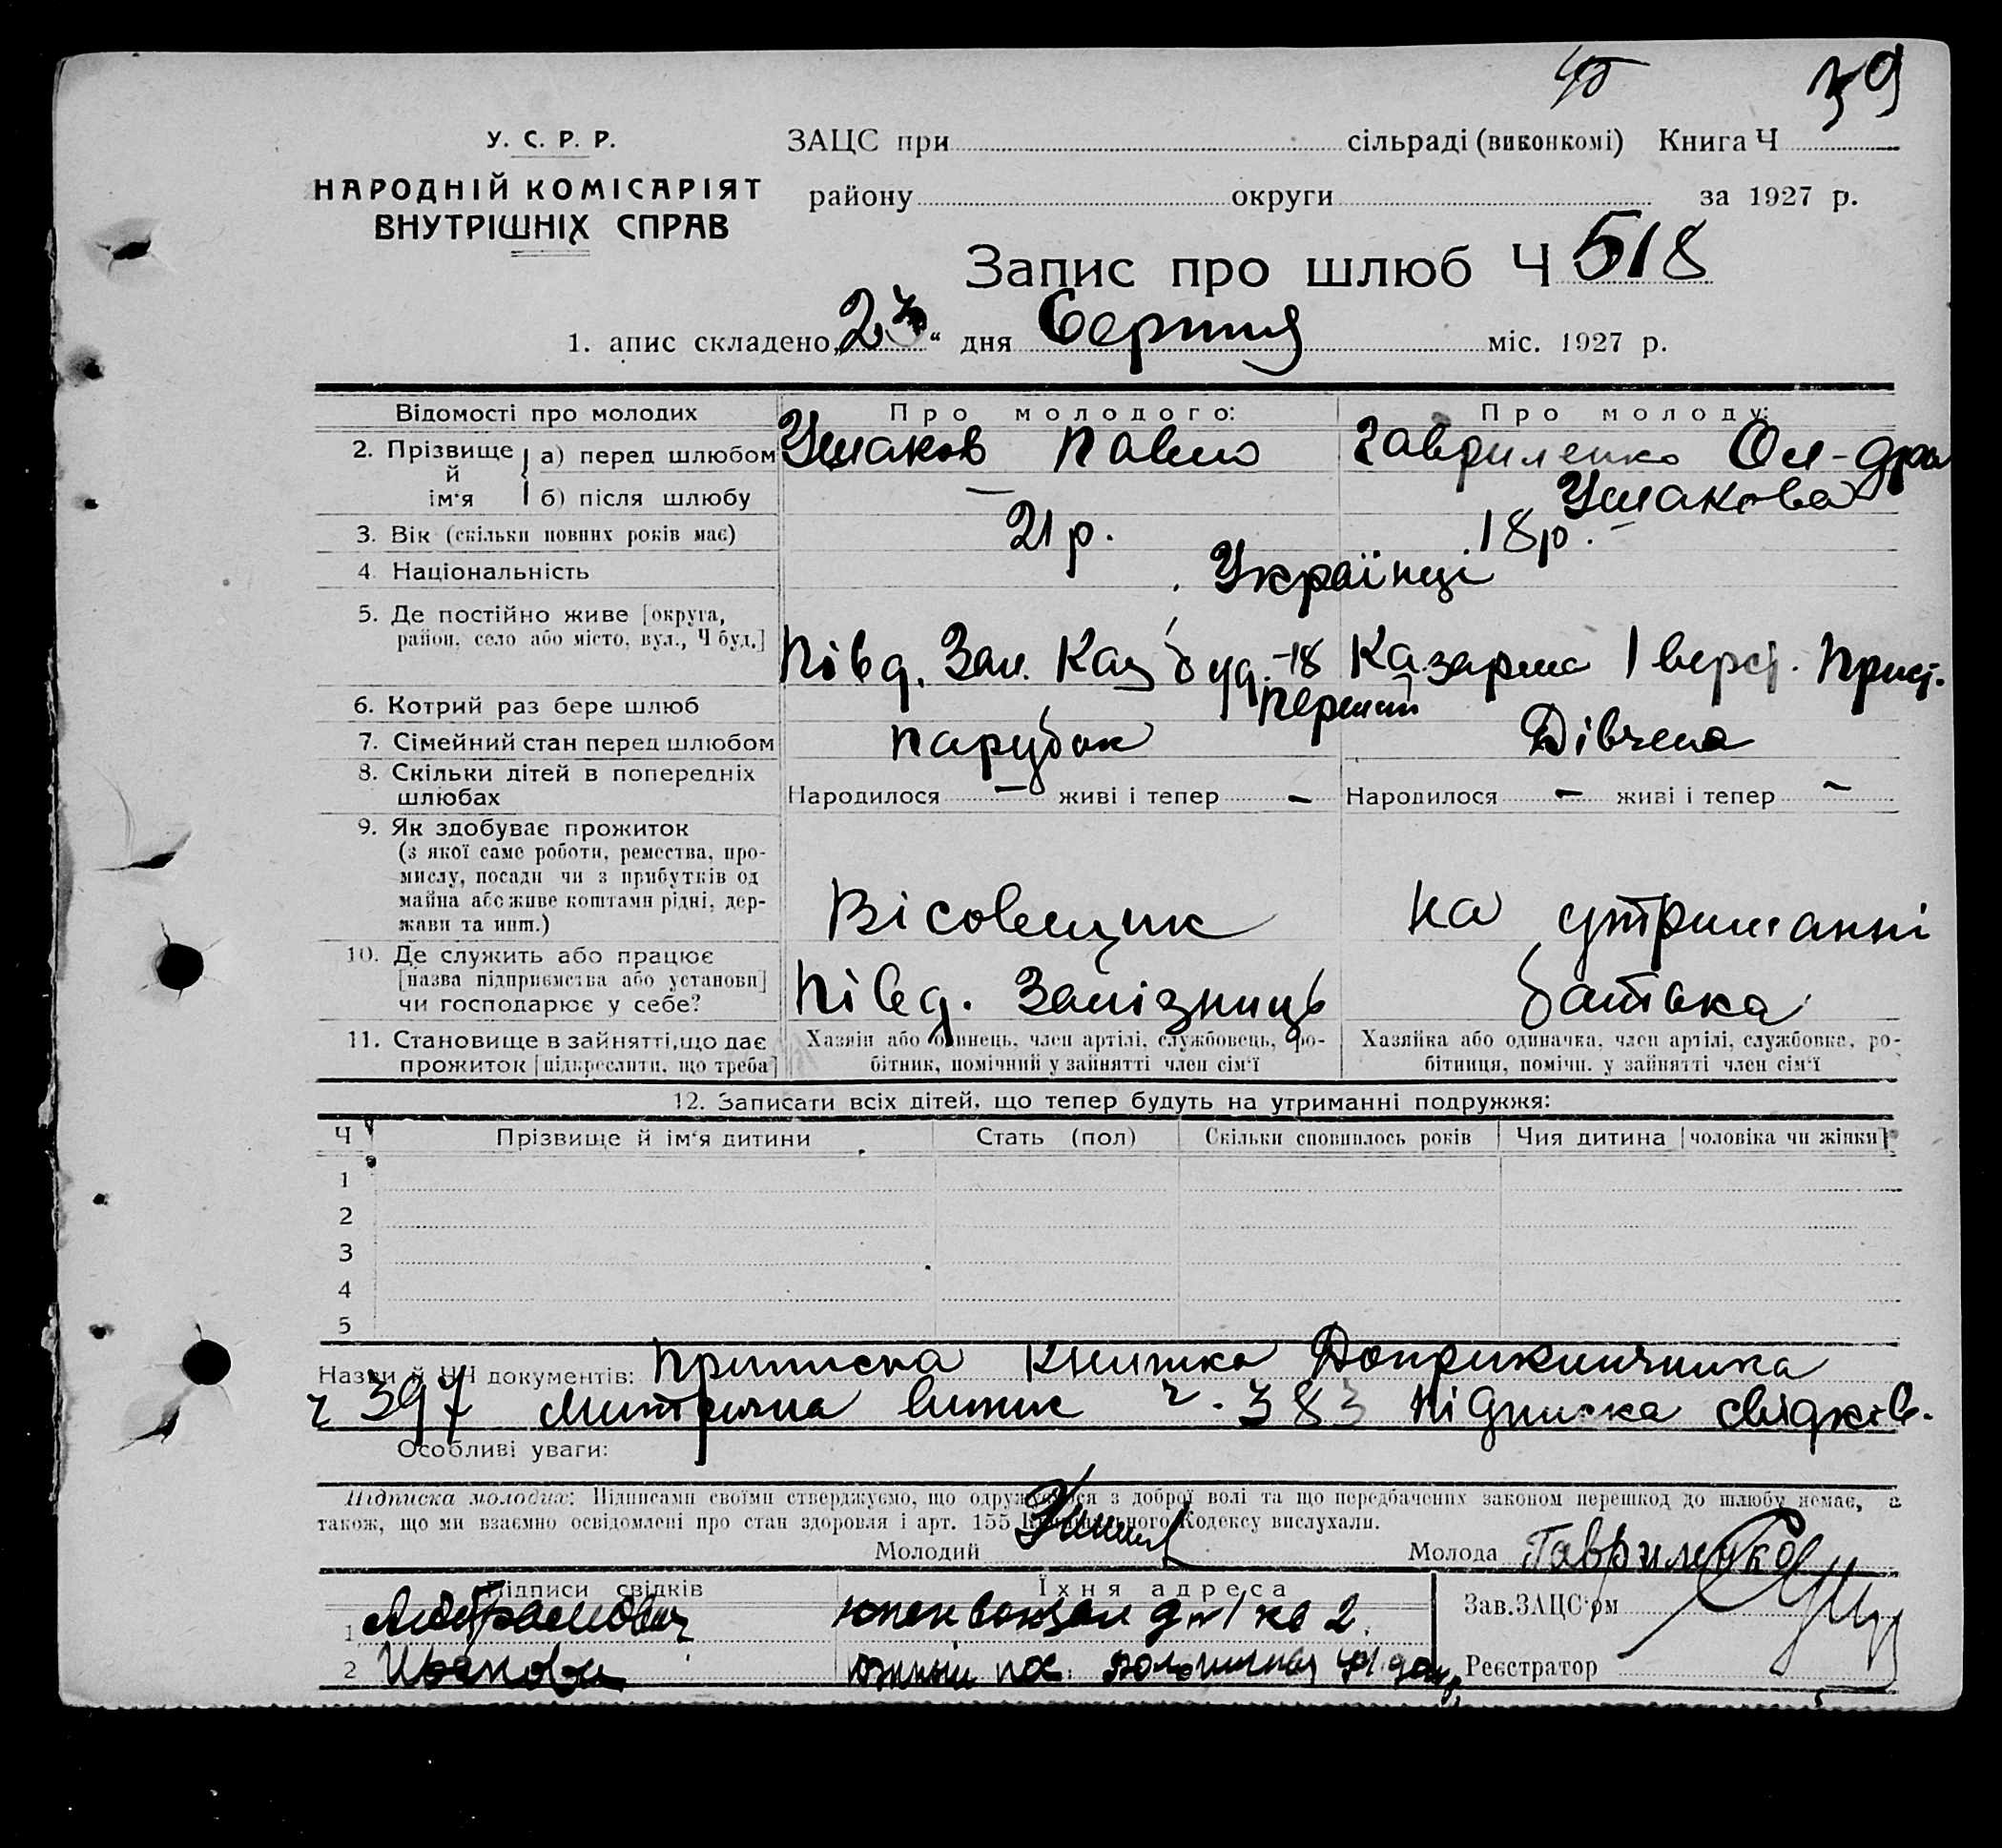 39
У. С. Р. Р.
НАРОДНІЙ КОМІСАРІЯТ
ВНУТРІШНІХ СПРАВ
ЗАЦС при сільраді (виконкомі) Книга Ч
району округи за 1927 р.
Запис про шлюб Ч 518
1. апис складено „23“ дня Серпня міс. 1927 р.
Відомості про молодих
Про молодого:
Про молоду:
2. Прізвище й ім'я
а) перед шлюбом
Ушаков Павло
Гавриленко Ол-дра
б) після шлюбу
—
Ушакова
3. Вік (скільки повних років має)
21 р.
18 р.
4. Національність
Українці
5. Де постійно живе [округа,
район, село або місто, вул., Ч буд.]
Півд. Зал. Каз буд. -18
Казарма 1 верст. Прист.
6. Котрий раз бере шлюб
7. Сімейний стан перед шлюбом
парубок
Дівчена
8. Скільки дітей в попередніх
шлюбах
Народилося — живі і тепер —
Народилося — живі і тепер —
9. Як здобуває прожиток
(з якої саме роботи, ремества, про-
мислу, посади чи з прибутків од
майна або живе коштами рідні, дер-
жави та инш.)
Вісовщик
на утриманні
10. Де служить або працює
[назва підприємства або установи]
чи господарює у себе?
Півд. Залізниць
батька
11. Становище в зайнятті, що дає
прожиток [підкреслити, що треба]
Хазяін або одинець, член артілі, службовець, ро-
бітник, помічний у зайнятті член сім'ї
Хазяйка або одиначка, член артілі, службовка, ро-
бітниця, помічн. у зайнятті член сім'ї
12. Записати всіх дітей, що тепер будуть на утриманні подружжя:
Ч
Прізвище й ім'я дитини
Стать (пол)
Скільки сповнилось років
Чия дитина [чоловіка чи жінки]
1
2
3
4
5
Назви й ЧЧ документів: Приписна Книжка Допризивника
ч 397 Митрична випис ч. 383 підписка свідків.
Особливі уваги:
Підписка молодих: Підписами своїми стверджуємо, що одружуємося з доброї волі та що передбачених законом перешкод до шлюбу немає, а
також, що ми взаємно освідомлені про стан здоровля і арт. 155 Кримінального Кодексу вислухали.
Молодий
Молода Гавриленко
Підписи свідків
Їхня адреса
Зав. ЗАЦС'ом
1
2
Реєстратор